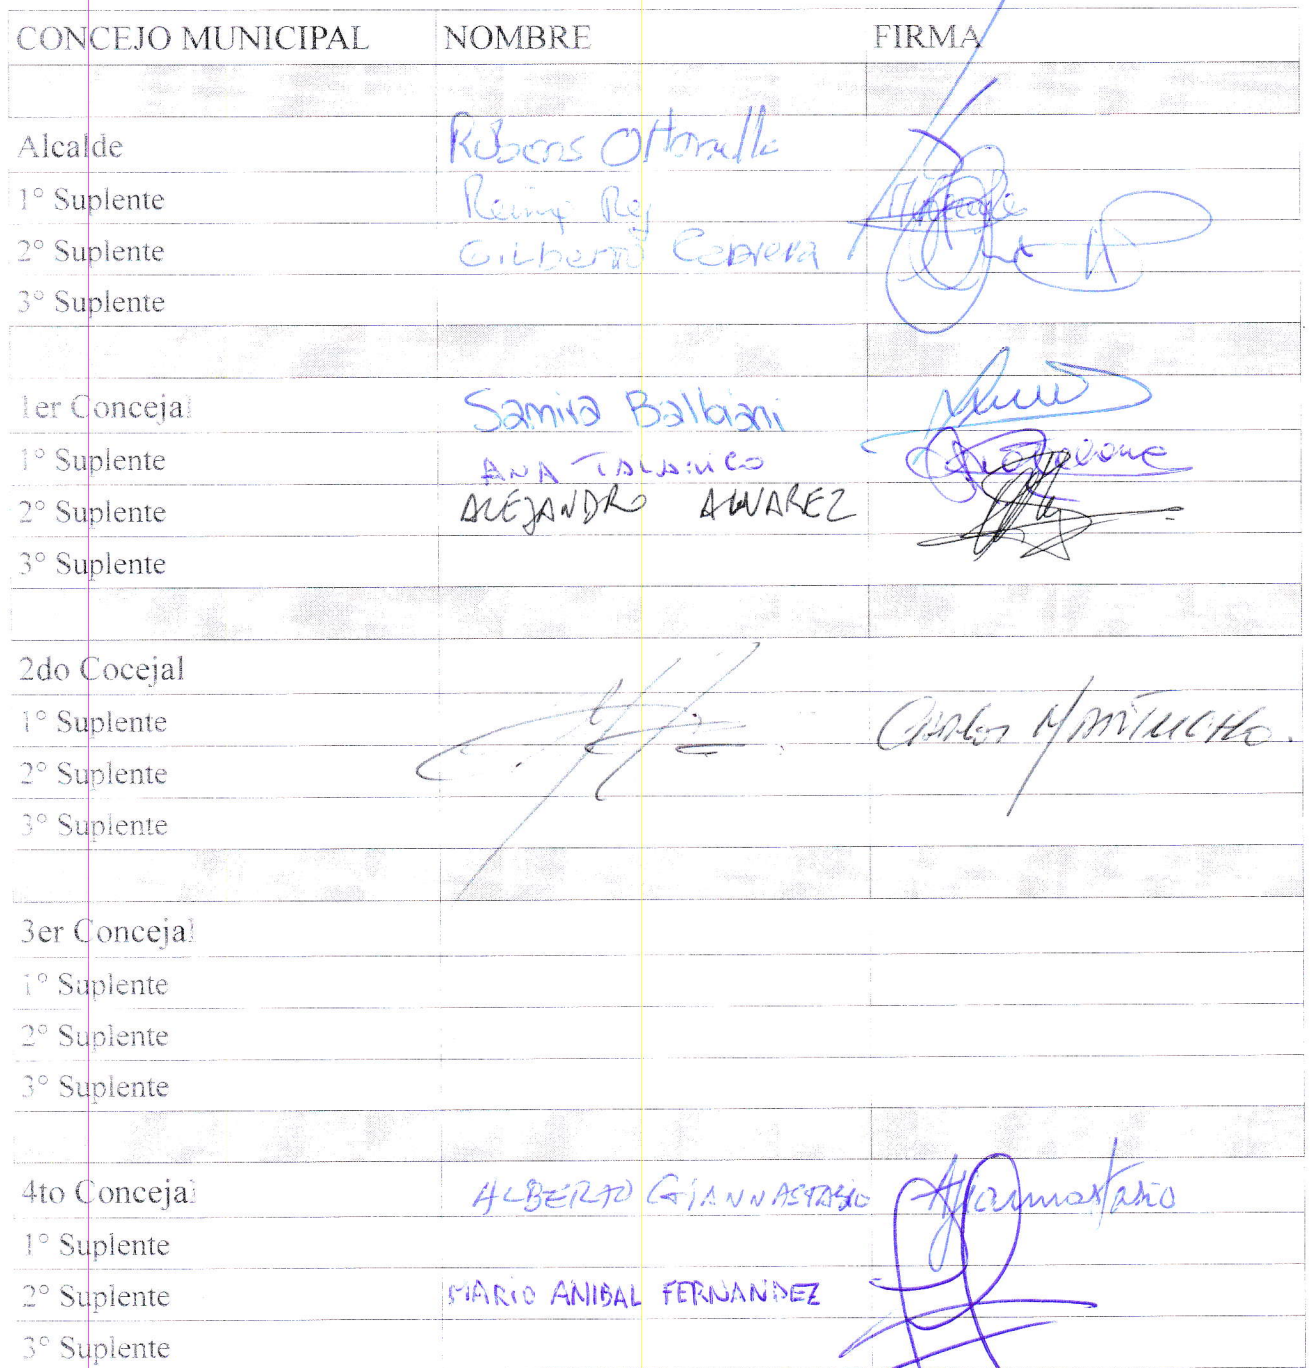 CONCEJO MUNICIPAL NOMBRE FIRMA
Alcalde Rubens Ottonello
1° Suplente Reiny Rey
2° Suplente Gilberto Cabrera
3° Suplente
1er Concejal Samira Balbiani
1° Suplente ANA TALAMCO
2° Suplente ALEJANDRO ALVAREZ
3° Suplente
2do Cocejal
1° Suplente CARLOS
2° Suplente
3° Suplente
3er Concejal
1° Suplente
2° Suplente
3° Suplente
4to Concejal ALBERTO GIANNASTASIO AGiannastasio
1° Suplente
2° Suplente MARIO ANIBAL FERNANDEZ
3° Suplente